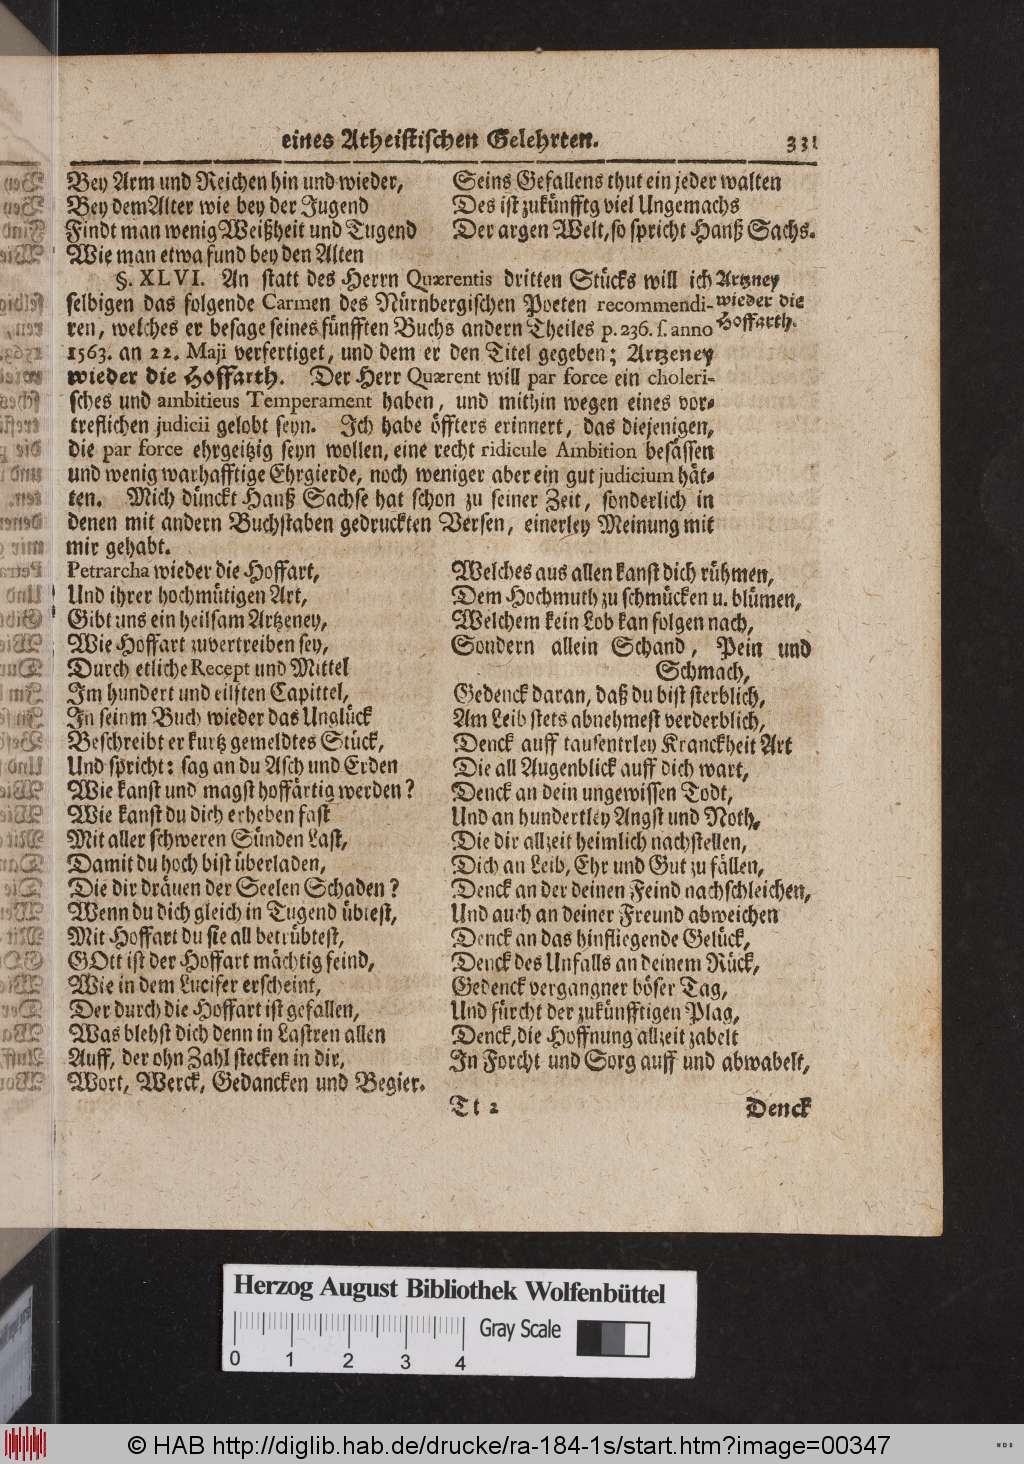 eines Atheistischen Gelehrten. 331
Bey Arm und Reichen hin und wieder,
Bey dem Alter wie bey der Jugend
Findt man wenig Weißheit und Tugend
Wie man etwa fund bey den Alten
Seins Gefallens thut ein jeder walten
Des ist zukünfftg viel Ungemachs
Der argen Welt, so spricht Hanß Sachs.
§. XLVI. An statt des Herrn Quærentis dritten Stücks will ich
selbigen das folgende Carmen des Nürnbergischen Poeten recommendi-
ren, welches er besage seines fünfften Buchs andern Theiles p. 236. f. anno
1563. an 22. Maji verfertiget, und dem er den Titel gegeben; Artzeney
wieder die Hoffarth. Der Herr Quærent will par force ein choleri-
sches und ambitieus Temperament haben, und mithin wegen eines vor-
treflichen judicii gelobt seyn. Ich habe öffters erinnert, das diejenigen,
die par force ehrgeitzig seyn wollen, eine recht ridicule Ambition besässen
und wenig warhafftige Ehrgierde, noch weniger aber ein gut judicium hät-
ten. Mich dünckt Hanß Sachse hat schon zu seiner Zeit, sonderlich in
denen mit andern Buchstaben gedruckten Versen, einerley Meinung mit
mir gehabt.
Artzney
wieder die
Hoffarth.
Petrarcha wieder die Hoffart,
Und ihrer hochmütigen Art,
Gibt uns ein heilsam Artzeney,
Wie Hoffart zuvertreiben sey,
Durch etliche Recept und Mittel
Im hundert und eilften Capittel,
In seinm Buch wieder das Unglück
Beschreibt er kurtz gemeldtes Stück,
Und spricht: sag an du Asch und Erden
Wie kanst und magst hoffärtig werden?
Wie kanst du dich erheben fast
Mit aller schweren Sünden Last,
Damit du hoch bist überladen,
Die dir dräuen der Seelen Schaden?
Wenn du dich gleich in Tugend übtest,
Mit Hoffart du sie all betrübtest,
GOtt ist der Hoffart mächtig feind,
Wie in dem Lucifer erscheint,
Der durch die Hoffart ist gefallen,
Was blehst dich denn in Lastren allen
Auff, der ohn Zahl stecken in dir,
Wort, Werck, Gedancken und Begier.
Welches aus allen kanst dich rühmen,
Dem Hochmuth zu schmücken u. blümen,
Welchem kein Lob kan folgen nach,
Sondern allein Schand, Pein und
Schmach,
Gedenck daran, daß du bist sterblich,
Am Leib stets abnehmest verderblich,
Denck auff tausentrley Kranckheit Art
Die all Augenblick auff dich wart,
Denck an dein ungewissen Todt,
Und an hundertley Angst und Noth,
Die dir allzeit heimlich nachstellen,
Dich an Leib, Ehr und Gut zu fällen,
Denck an der deinen Feind nachschleichen,
Und auch an deiner Freund abweichen
Denck an das hinfliegende Gelück,
Denck des Unfalls an deinem Rück,
Gedenck vergangner böser Tag,
Und fürcht der zukünfftigen Plag,
Denck, die Hoffnung allzeit zabelt
In Forcht und Sorg auff und abwabelt,
Tt 2 Denck
Herzog August Bibliothek Wolfenbüttel
Gray Scale
0 1 2 3 4
© HAB http://diglib.hab.de/drucke/ra-184-1s/start.htm?image=00347